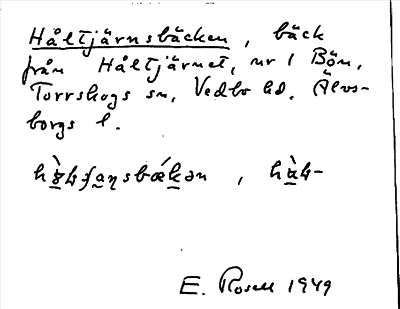 Håltjärnsbäcken, bäck
från Håltjärnet, nr 1 Bön,
Torrskogs sn, Vedbo hd. Älvs-
borgs l.
E. Rosell 1949